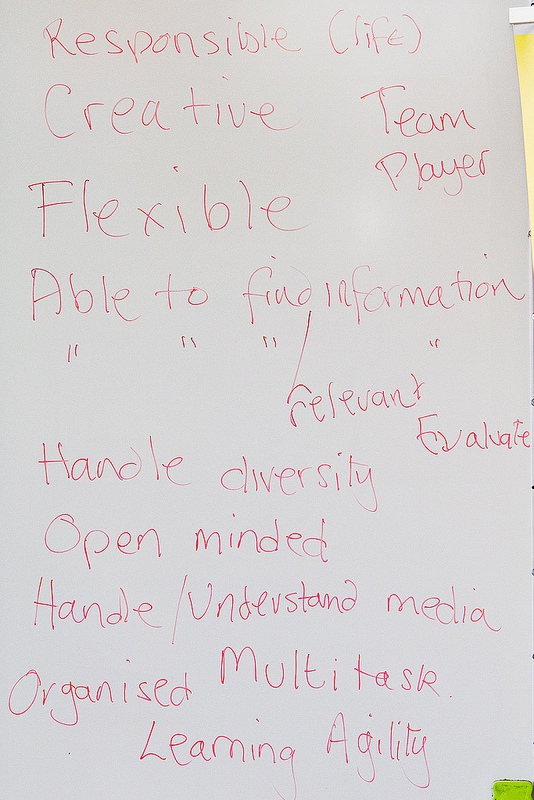 Responsible (life)
Creative
Team
Player
Flexible
Able to find information
" " " "
relevant
Evaluate
Handle diversity
Open minded
Handle/Understand media
Organised Multitask.
Learning Agility